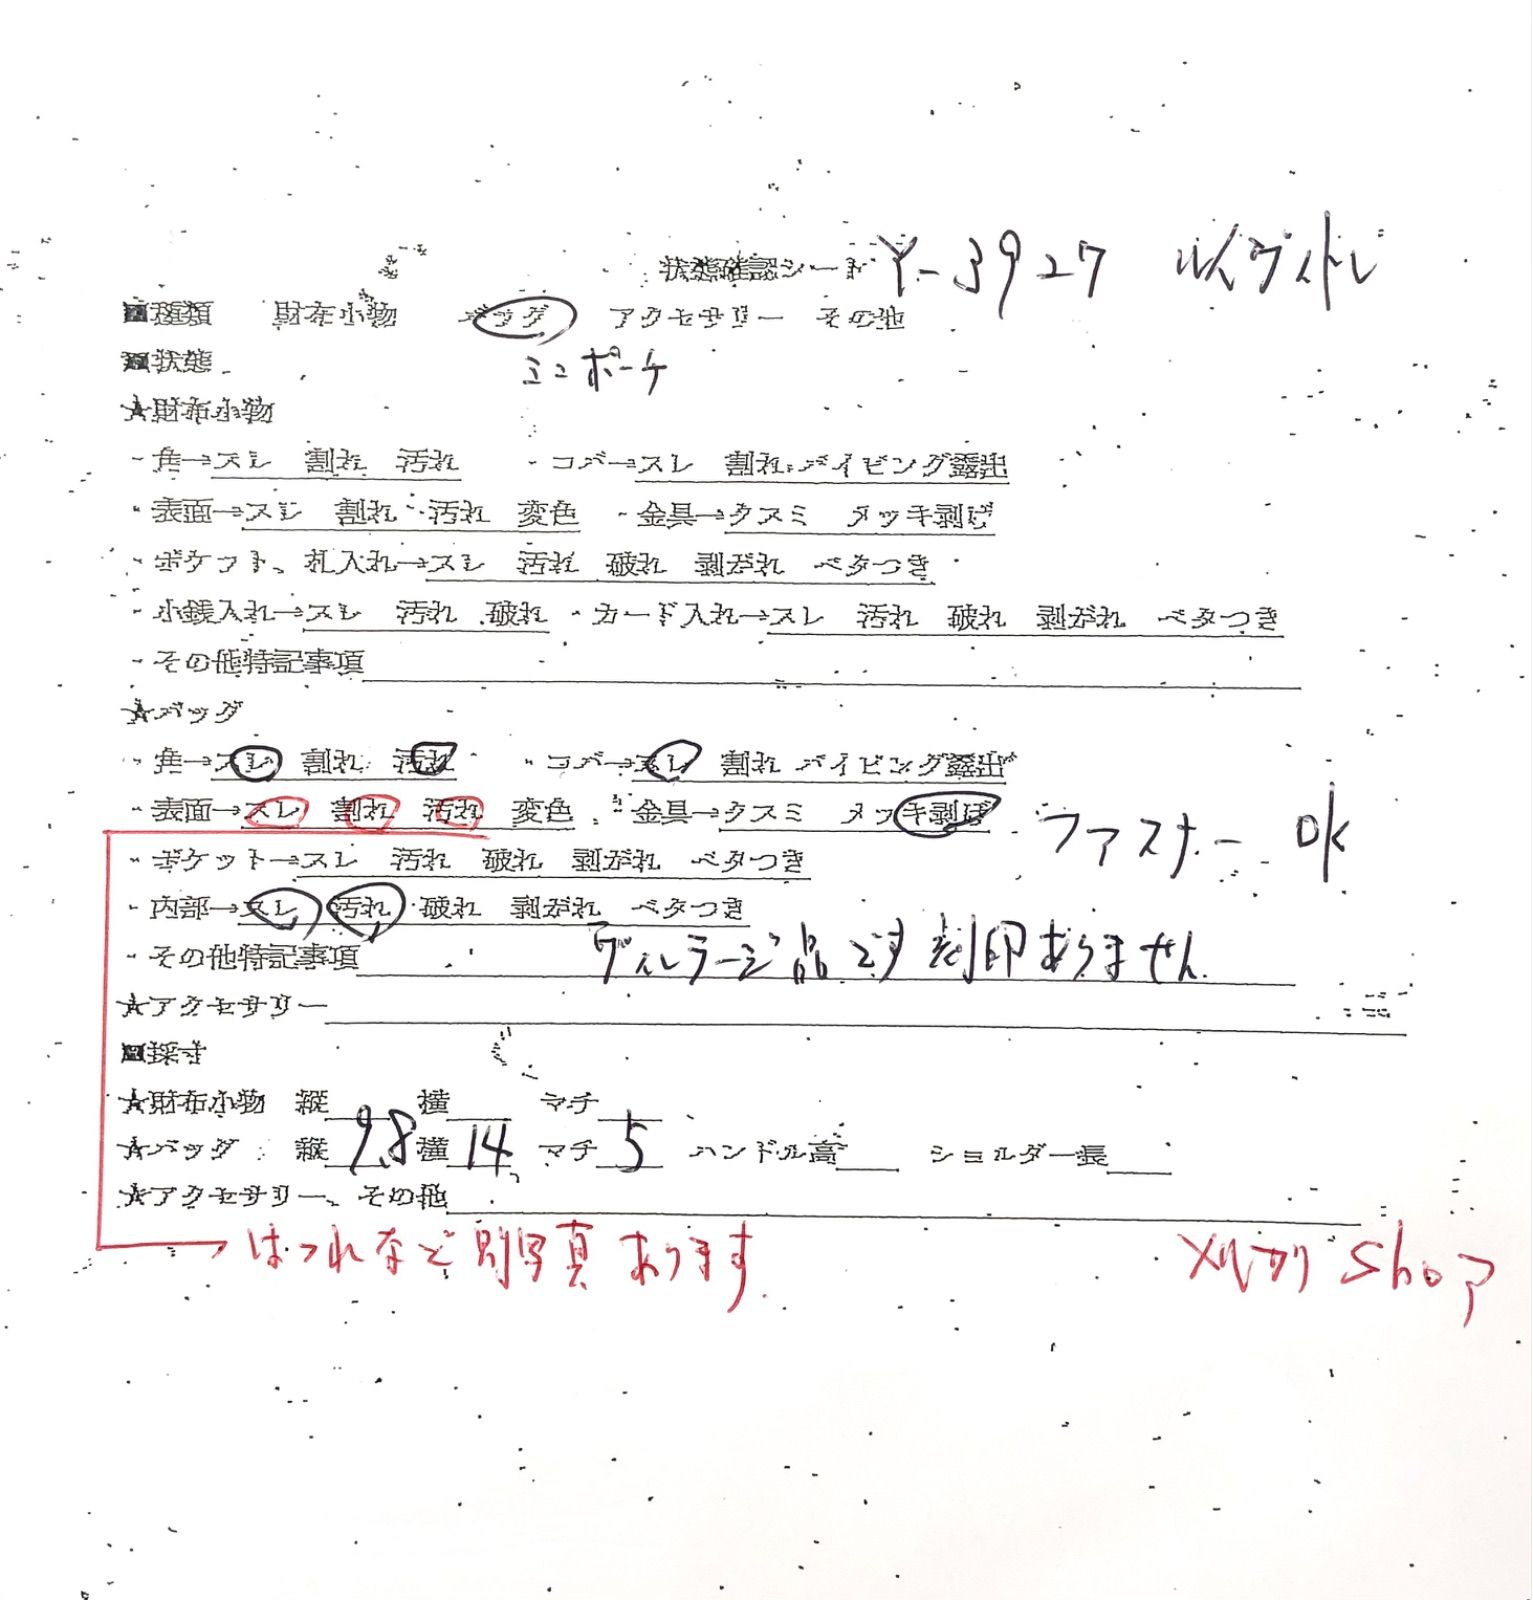 状態確認シート Y-3927 ルイヴィトン
■種類 財布小物 バッグ アクセサリー その他
■状態 ミニポーチ
★財布小物
・角→スレ 割れ 汚れ ・コバ→スレ 割れ パイピング露出
・表面→スレ 割れ 汚れ 変色 ・金具→クスミ メッキ剥げ
・ポケット、札入れ→スレ 汚れ 破れ 剥がれ ベタつき
・小銭入れ→スレ 汚れ 破れ ・カード入れ→スレ 汚れ 破れ 剥がれ ベタつき
・その他特記事項
★バッグ
・角→スレ 割れ 汚れ ・コバ→スレ 割れ パイピング露出
・表面→スレ 割れ 汚れ 変色 ・金具→クスミ メッキ剥げ ファスナー OK
・ポケット→スレ 汚れ 破れ 剥がれ ベタつき
・内部→スレ 汚れ 破れ 剥がれ ベタつき
・その他特記事項 ヴィンテージ品です 刻印ありません
★アクセサリー
■採寸
★財布小物 縦 横 マチ
★バッグ 縦 9.8 横 14 マチ 5 ハンドル高 ショルダー長
★アクセサリー、その他
→ ほつれなど別写真あります メルカリ Shop